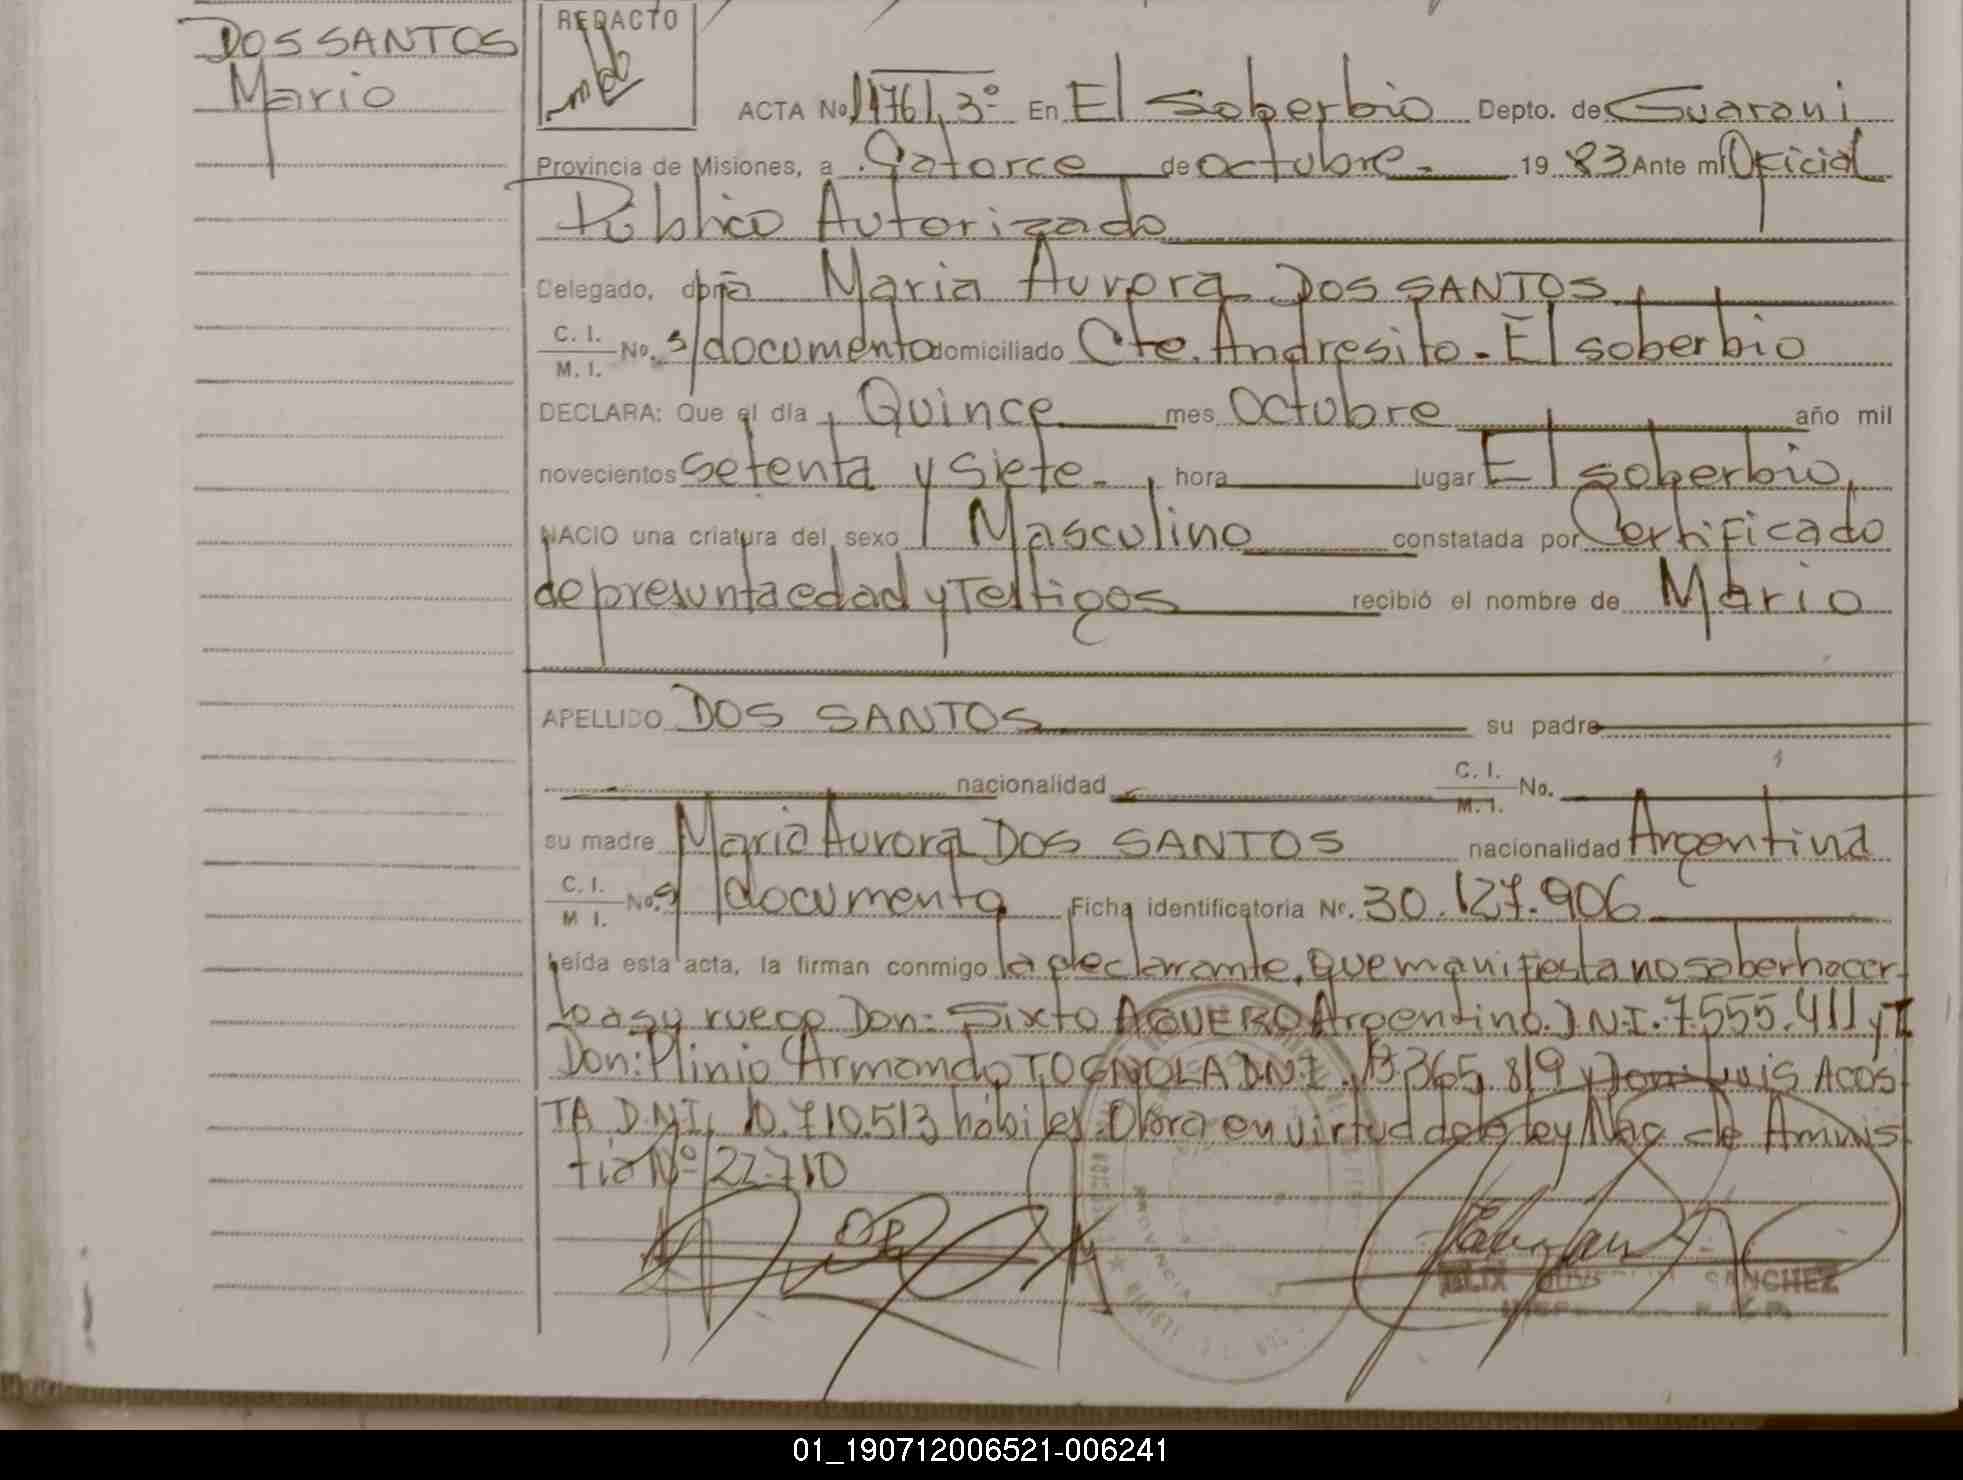 DOS SANTOS
Mario
REDACTO
ACTA No 1476/ 3º En El Soberbio Depto. de Guarani
Provincia de Misiones, a Catorce de octubre 19 83 Ante mi Oficial
Público Autorizado
Delegado, doña Maria Aurora DOS SANTOS
C. I.
M. I.
No. s/documento domiciliado Cte. Andresito - El soberbio
DECLARA: Que el día Quince mes Octubre año mil
novecientos Setenta y Siete hora lugar El soberbio
NACIO una criatura del sexo Masculino constatada por Certificado
de presunta edad y Testigos recibió el nombre de Mario
APELLIDO DOS SANTOS su padre
nacionalidad C. I. M. I. No.
su madre Maria Aurora DOS SANTOS nacionalidad Argentina
C. I.
M I.
No. s/documento Ficha identificatoria Nº. 30.127.906
Leída esta acta, la firman conmigo la declarante, que manifiesta no saber hacer
lo a su ruego Don: Sixto AGUERO Argentino D.N.I. 7.555.411 y T
Don: Plinio Armando TOGNOLA D.N.I. 365.819 y Don: Luis ACOS
TA D.N.I. 10.710.513 hábiles. Obra en virtud de la ley Nac de Amnis
tia Nº 22.710
PROVINCIA
SANCHEZ
01_190712006521-006241